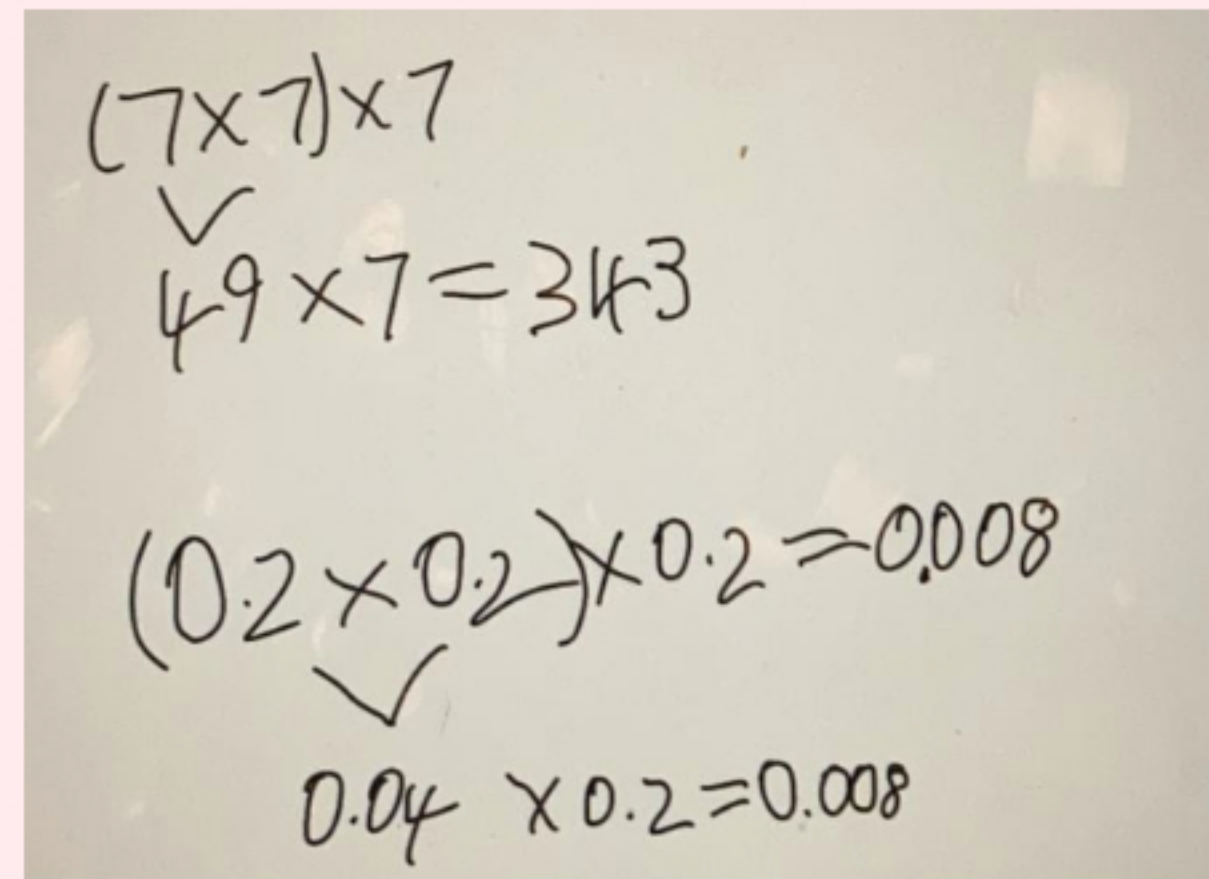 (7×7)×7
49×7=343
(0.2×0.2)×0.2=0.008
0.04 ×0.2=0.008